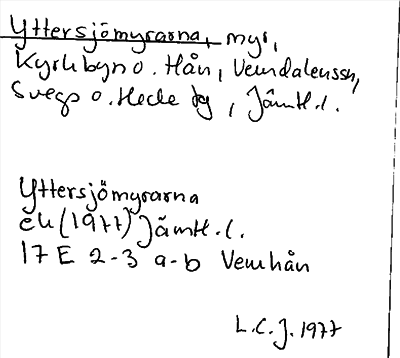 Yttersjömyrarna, myr,
Kyrkbyn o. Hån, Vemdalens sn,
Svegs o. Hede tg, Jämtl. l.
Yttersjömyrarna
ek (1977) Jämtl. l.
17 E 2-3 a-b Vemhån
L.C.J. 1977